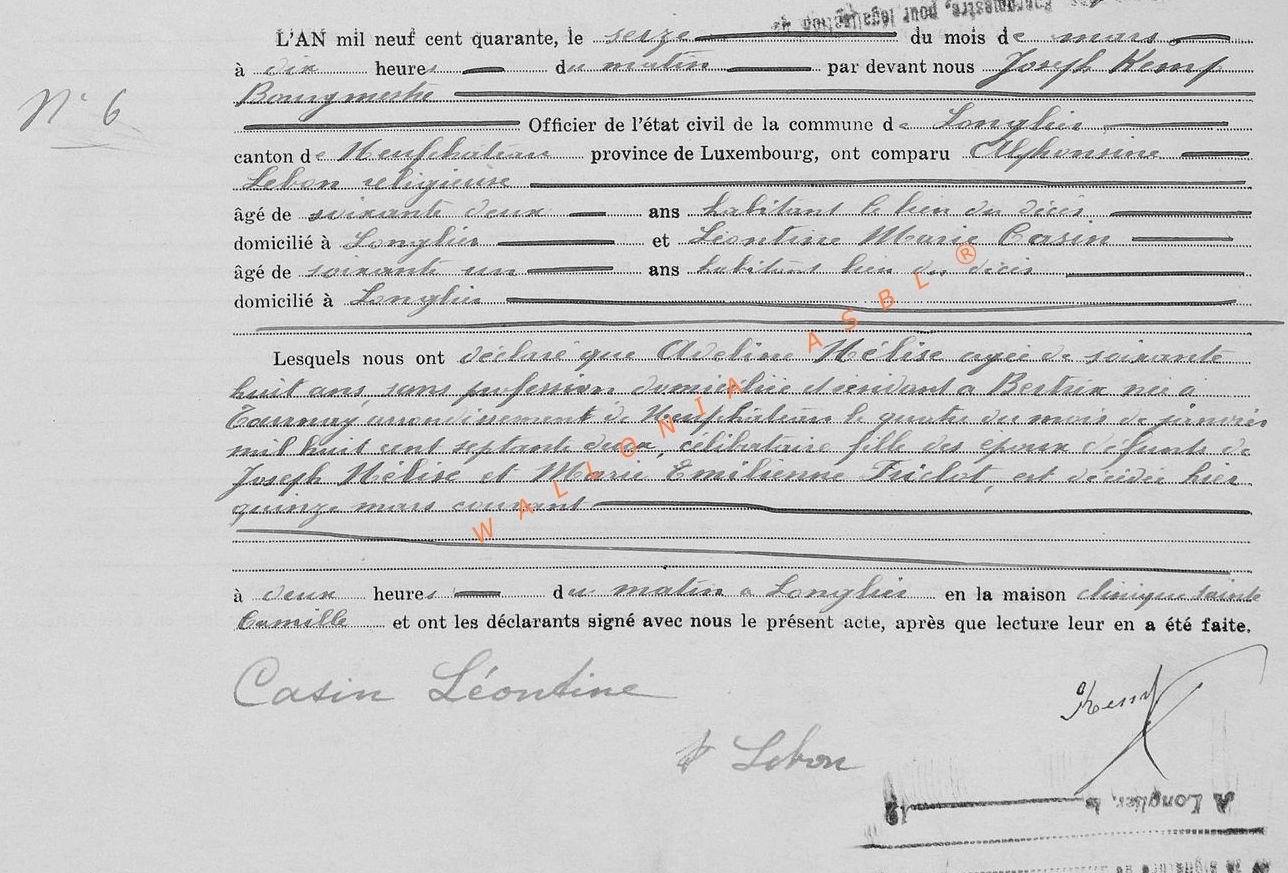 L'AN mil neuf cent quarante, le seize du mois de mars
à dix heures du matin par devant nous Joseph Kemp
Bourgmestre
N° 6
Officier de l'état civil de la commune de Longlier
canton de Neufchâteau province de Luxembourg, ont comparu Alphonsine
Lebon religieuse
âgé de soixante deux ans habitant le lieu du décès
domicilié à Longlier et Léontine Marie Casin
âgé de soixante un ans habitant lieu du décès
domicilié à Longlier
Lesquels nous ont déclaré que Adeline Hélise agée de soixante
huit ans, sans profession domiciliée et résidant à Bertrix née à
Tournay arrondissement de Neufchâteau le quatre du mois de janvier
mil huit cent septante deux, célibataire fille des époux défunts de
Joseph Hélise et Marie Emilienne, est décédée hier
quinze mars courant
à deux heures du matin à Longlier en la maison clinique Sainte
Camille et ont les déclarants signé avec nous le présent acte, après que lecture leur en a été faite.
Casin Léontine
Kemp
Lebon
A Longlier, le 19
WALLONIA ASBL ®